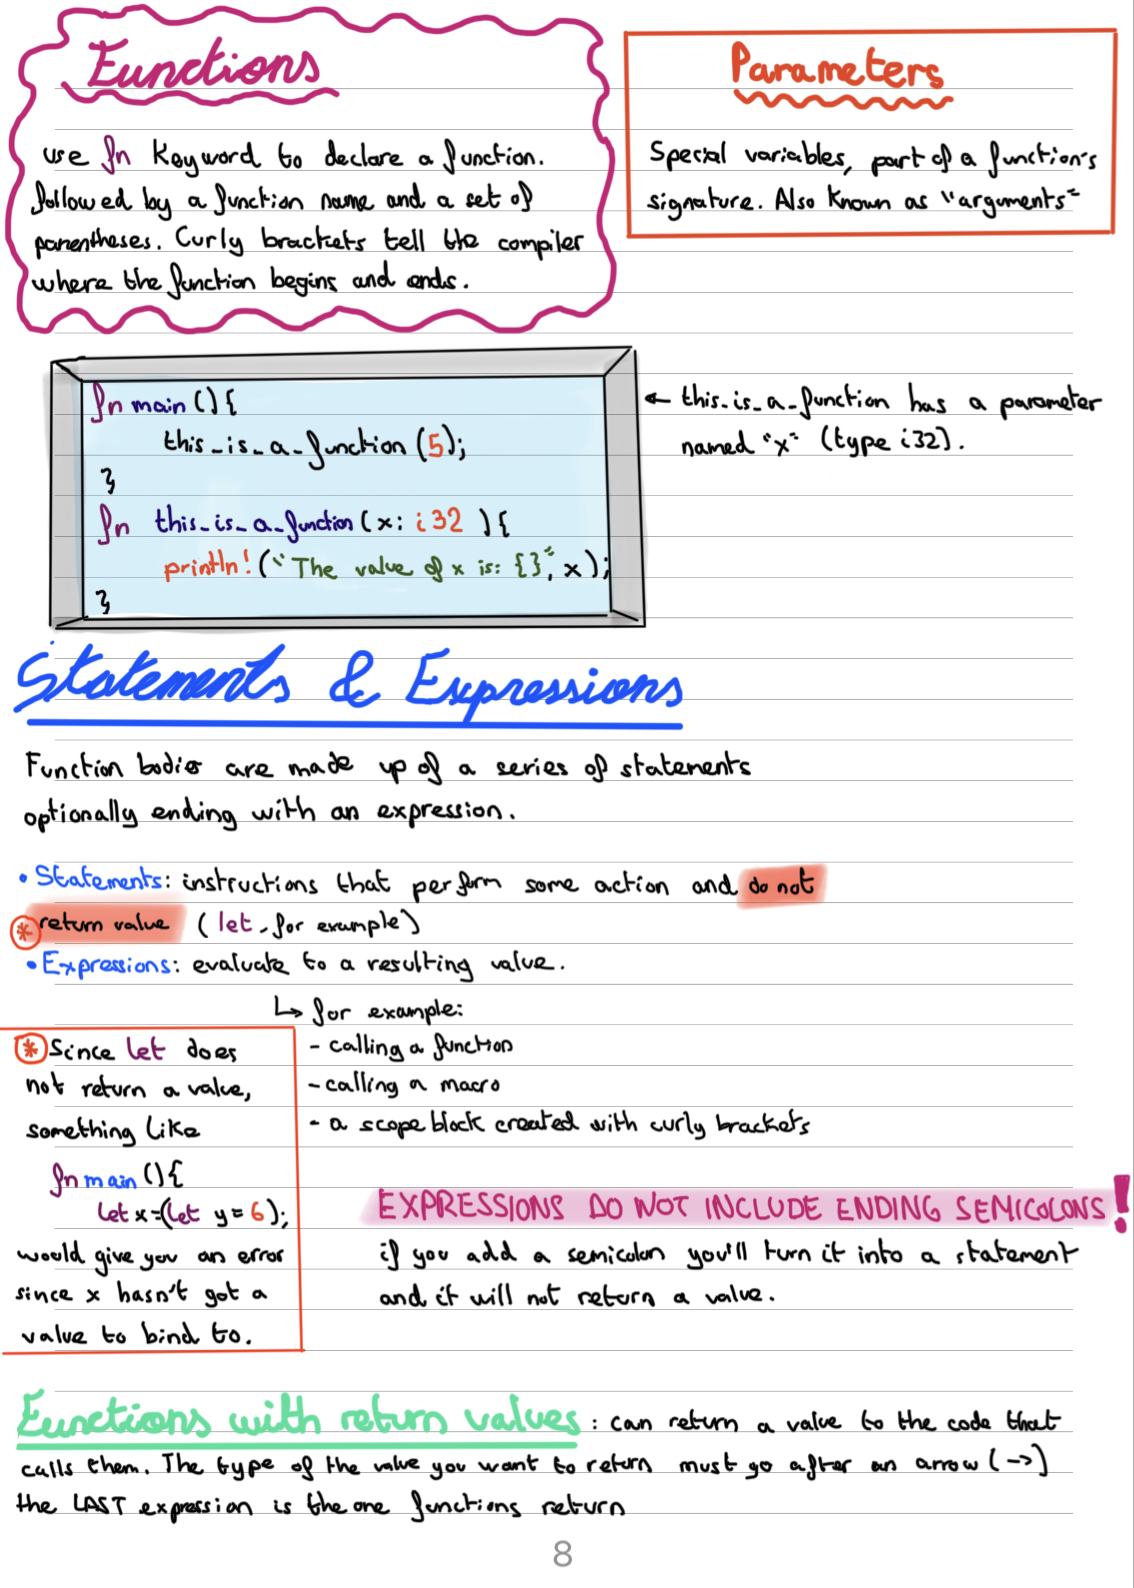 Functions
use fn keyword to declare a function.
followed by a function name and a set of
parentheses. Curly brackets tell the compiler
where the function begins and ends.
Parameters
Special variables, part of a function's
signature. Also known as "arguments"
fn main () {
this_is_a_function (5);
}
fn this_is_a_function (x: i32 ) {
println! ("The value of x is: {}", x);
}
← this_is_a_function has a parameter
named "x" (type i32).
Statements & Expressions
Function bodies are made up of a series of statements
optionally ending with an expression.
• Statements: instructions that perform some action and do not
* return value (let, for example)
• Expressions: evaluate to a resulting value.
↳ for example:
- calling a function
- calling a macro
- a scope block created with curly brackets
* Since let does
not return a value,
something like
fn main () {
let x = (let y = 6);
would give you an error
since x hasn't got a
value to bind to.
EXPRESSIONS DO NOT INCLUDE ENDING SEMICOLONS!
if you add a semicolon you'll turn it into a statement
and it will not return a value.
Functions with return values : can return a value to the code that
calls them. The type of the value you want to return must go after an arrow (->)
the LAST expression is the one functions return
8